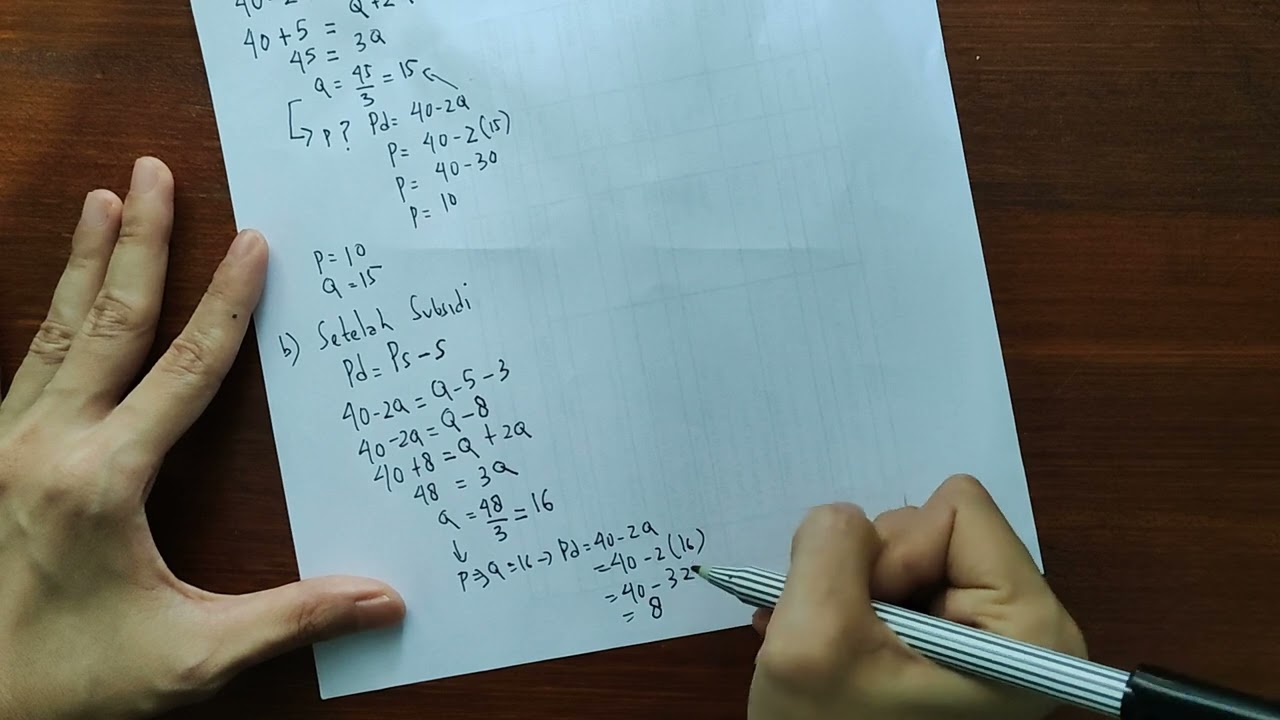 40+5 =
45 = 3Q
Q = 45/3 = 15
↳ P? Pd = 40-2Q
P = 40-2(15)
P = 40-30
P = 10
P = 10
Q = 15
b) Setelah Subsidi
Pd = Ps-s
40-2Q = Q-5-3
40-2Q = Q-8
40+8 = Q+2Q
48 = 3Q
Q = 48/3 = 16
↓
P ⇒ Q = 16 → Pd = 40-2Q
= 40-2(16)
= 40-32
= 8